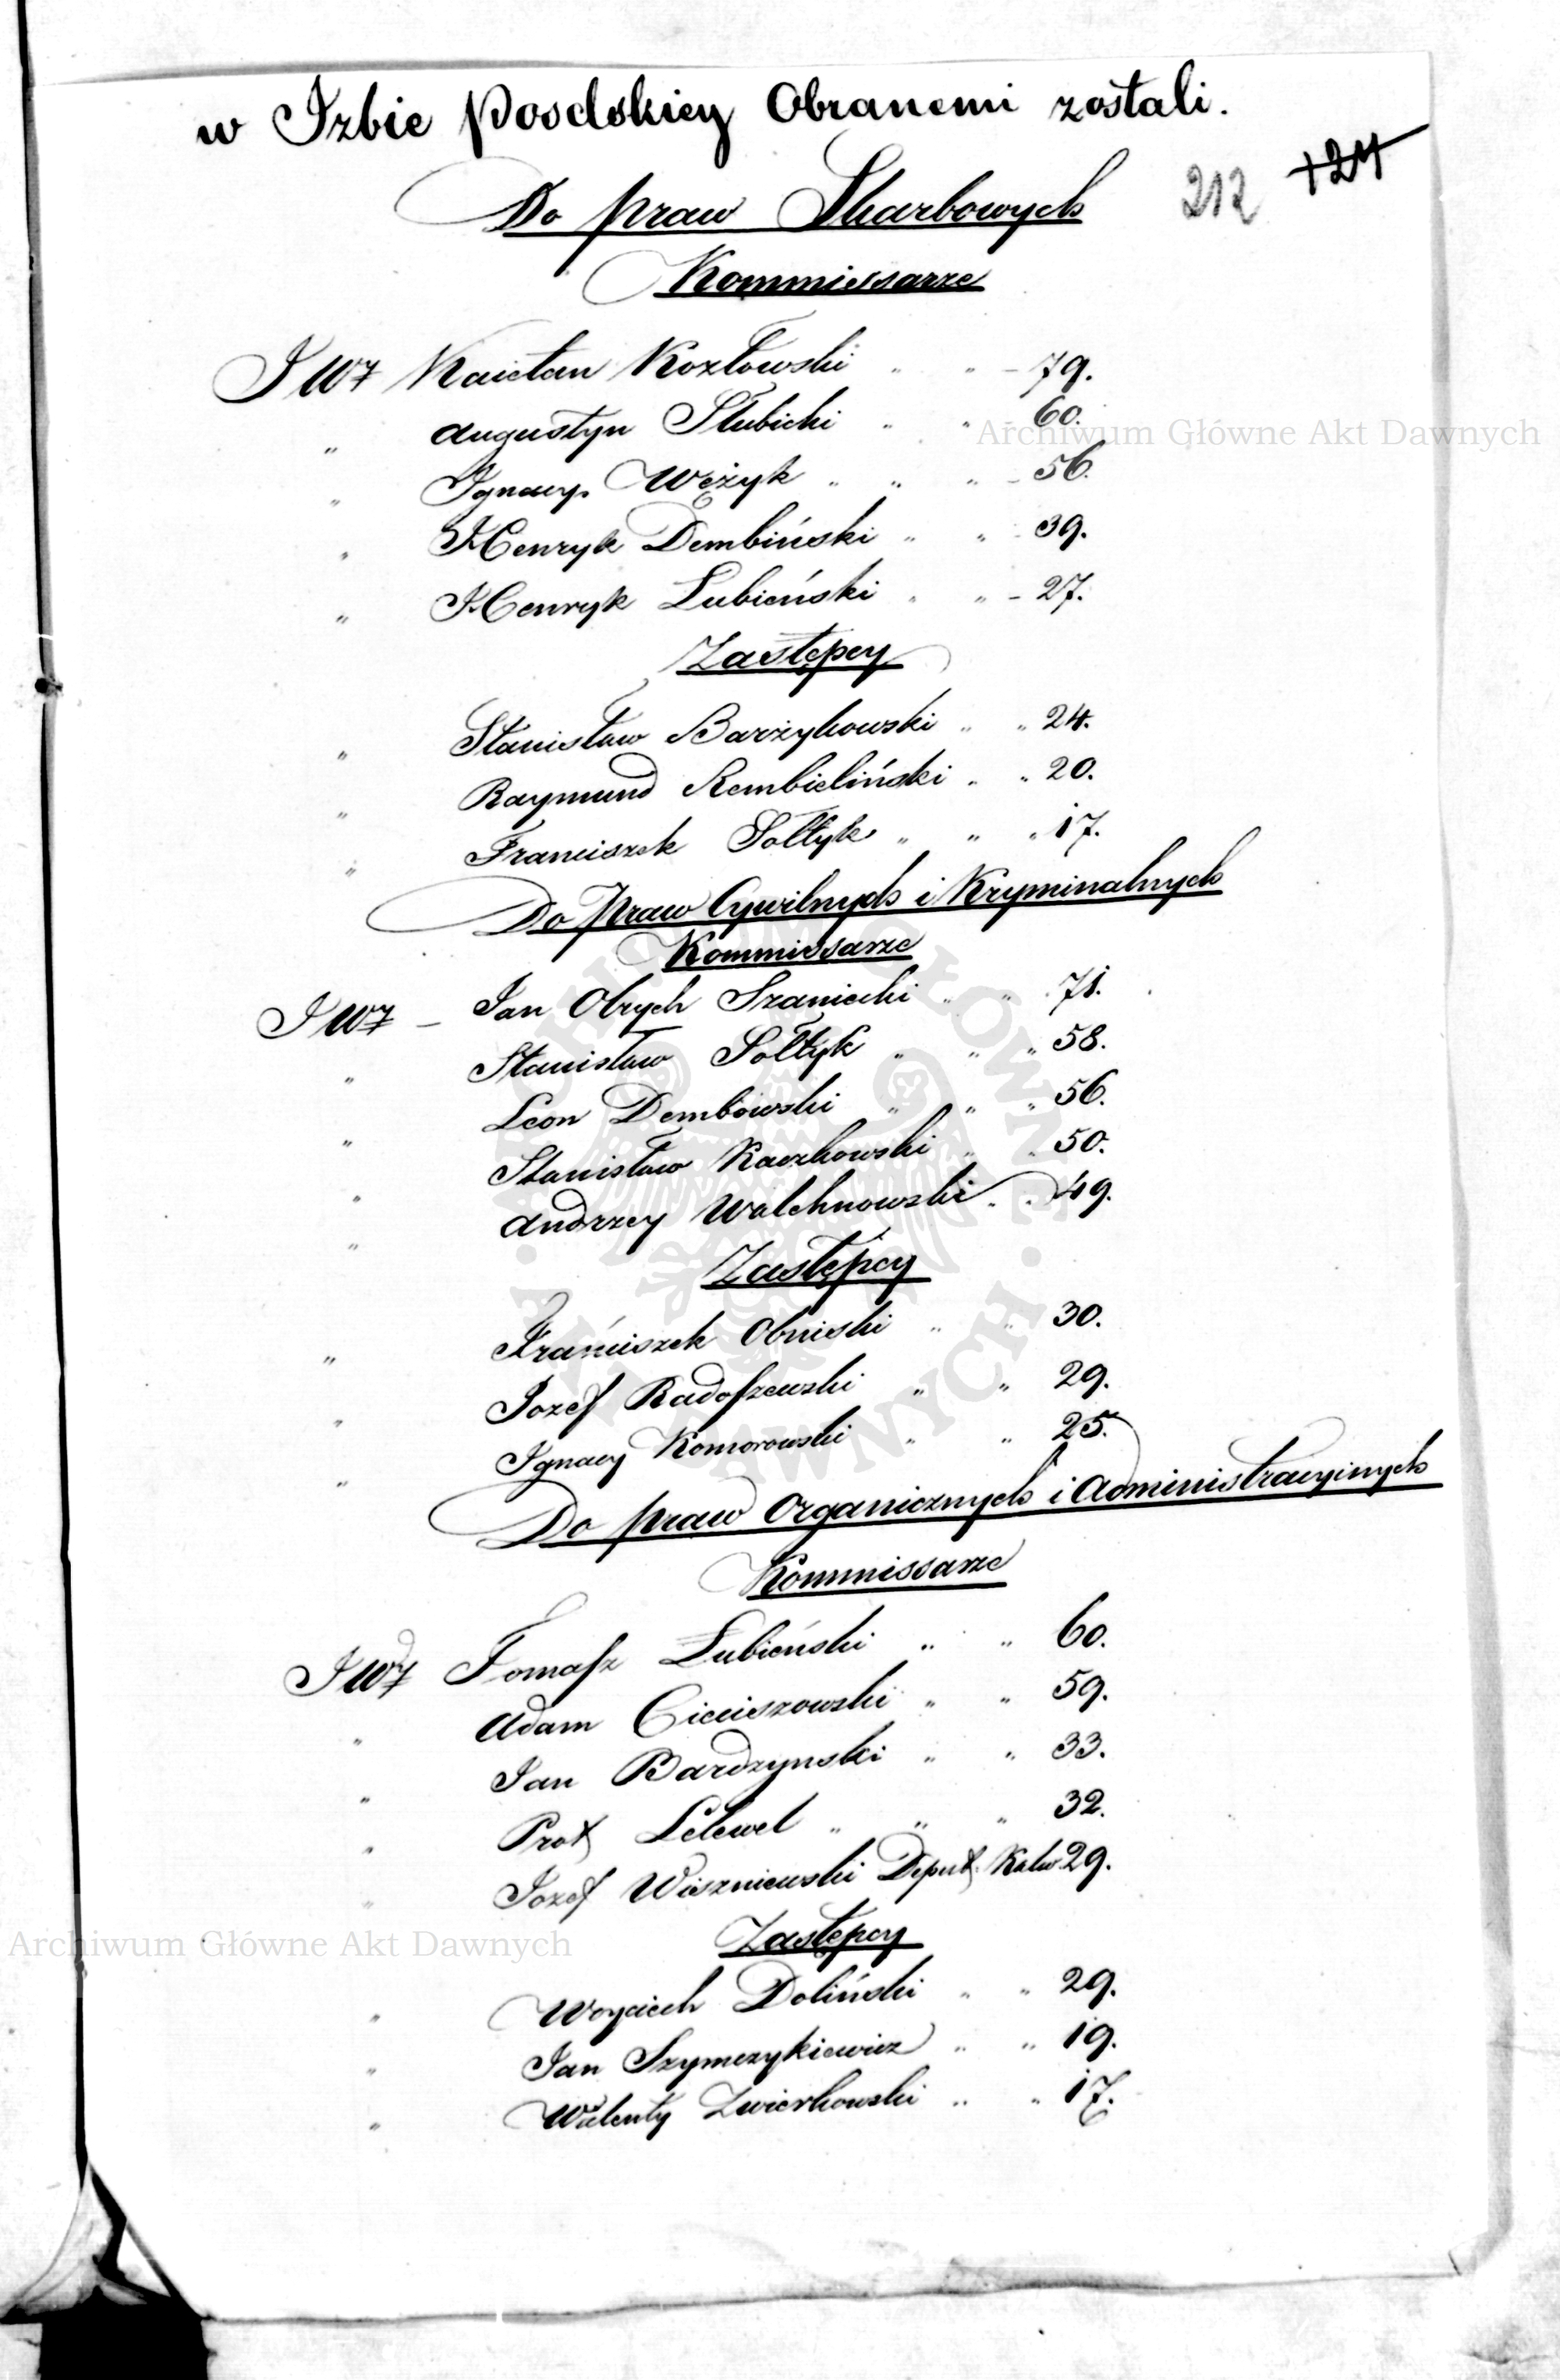 w Izbie Poselskiey Obranemi zostali.
212 124
Do praw Skarbowych
Kommissarze
JWJ Kaietan Kozłowski " " - 79.
" Augustyn Słubicki " " 60.
Archiwum Główne Akt Dawnych
" Ignacy Wężyk " " " - 56.
" Henryk Dembiński " " 39.
" Henryk Lubieński " " - 27.
Zastępcy
" Stanisław Barżykowski " " 24.
" Raymund Rembieliński " " 20.
" Franciszek Sołtyk " " " 17.
Do Praw Cywilnych i Kryminalnych
Kommissarze
JWJ - Jan Olrych Szaniecki " " 71.
" Stanisław Sołtyk " " " 58.
" Leon Dembowski " " " 56.
" Stanisław Kaczkowski " " 50.
" Andrzey Walchnowski " " 49.
Zastępcy
" Franciszek Obniski " " 30.
" Jozef Radoszewski " " 29.
" Ignacy Komorowski " " 25.
Do praw Organicznych i Administracyinych
Kommissarze
JWJ Tomasz Lubieński " " 60.
" Adam Cieciszowski " " 59.
" Jan Bardzynski " " 33.
" Prot Lelewel " " " 32.
" Jozef Wiszniewski Deput. Kalw 29.
Zastępcy
Archiwum Główne Akt Dawnych
" Woyciech Doliński " " 29.
" Jan Szymczykiewicz " " 19.
" Walenty Zwierkowski " " 17.